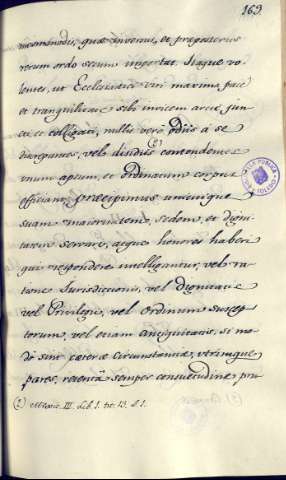 169.
incommodis, quæ invenit, et præposterus
rerum ordo secum importat. Itaque vo-
lentes, ut Ecclesiastici viri maxima pace
et tranquilitate sibi invicem arcte jun-
cti et colligati, nullis vero odiis a se
disiungantur, vel disidiis contendentes
unum aptum, et ordinatum corpus
efficiant, præcipimus unicuique
suam maioritatem, sedem, et digni-
tatem servare, atque honores haberi
qui respondere intelligantur, vel ra-
tione Jurisdictionis, vel dignitatis
vel Privilegii, vel ordinum suscep-
torum, vel etiam antiquitatis, si mo-
do sint cæteræ circunstantiæ, utrimque
pares, retenta semper consuetudine pru
(2) Lib. 1. tit. 13. §. 1.